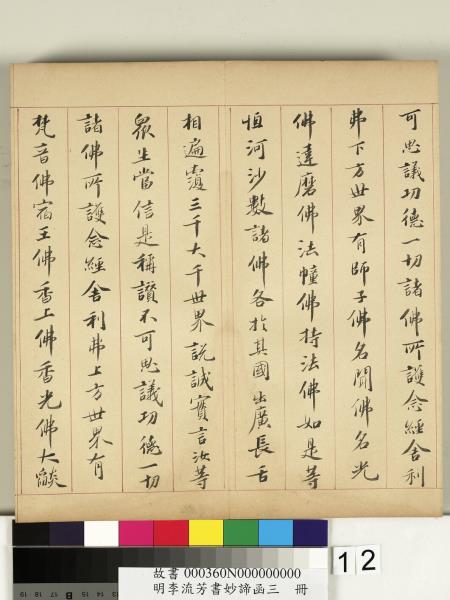 可思議功德一切諸佛所護念經舍利
弗下方世界有師子佛名聞佛名光
佛達磨佛法幢佛持法佛如是等
恒河沙數諸佛各於其國出廣長舌
相遍覆三千大千世界說誠實言汝等
眾生當信是稱讚不可思議功德一切
諸佛所護念經舍利弗上方世界有
梵音佛宿王佛香上佛香光佛大燄
12
故書 000360N000000000
明李流芳書妙諦函三 冊